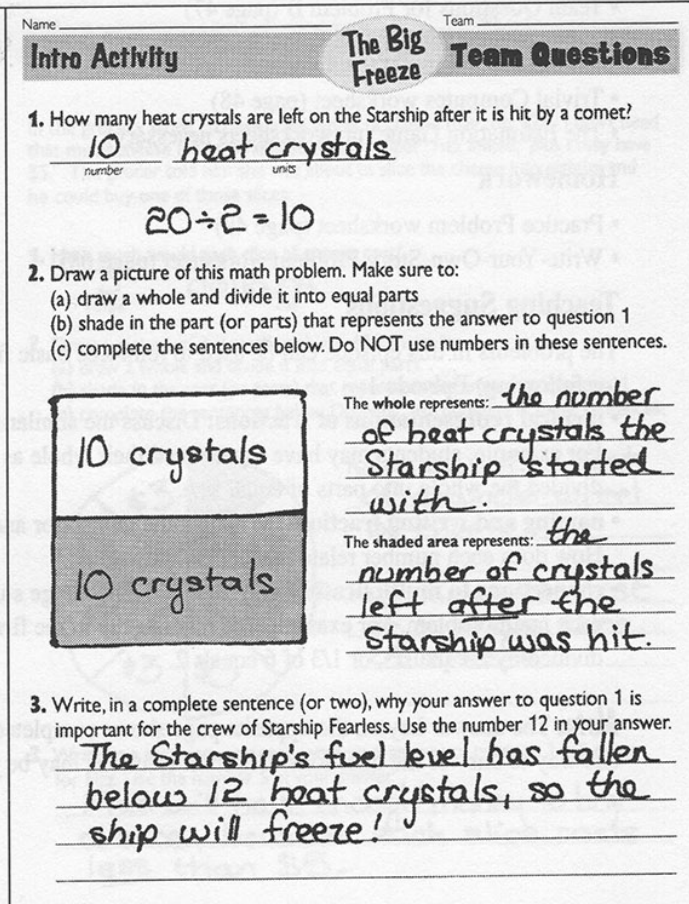 Name Team
Intro Activity The Big Freeze Team Questions
1. How many heat crystals are left on the Starship after it is hit by a comet?
10 heat crystals
number units
20÷2=10
2. Draw a picture of this math problem. Make sure to:
(a) draw a whole and divide it into equal parts
(b) shade in the part (or parts) that represents the answer to question 1
(c) complete the sentences below. Do NOT use numbers in these sentences.
10 crystals
10 crystals
The whole represents: the number
of heat crystals the
Starship started
with.
The shaded area represents: the
number of crystals
left after the
Starship was hit.
3. Write, in a complete sentence (or two), why your answer to question 1 is
important for the crew of Starship Fearless. Use the number 12 in your answer.
The Starship's fuel level has fallen
below 12 heat crystals, so the
ship will freeze!